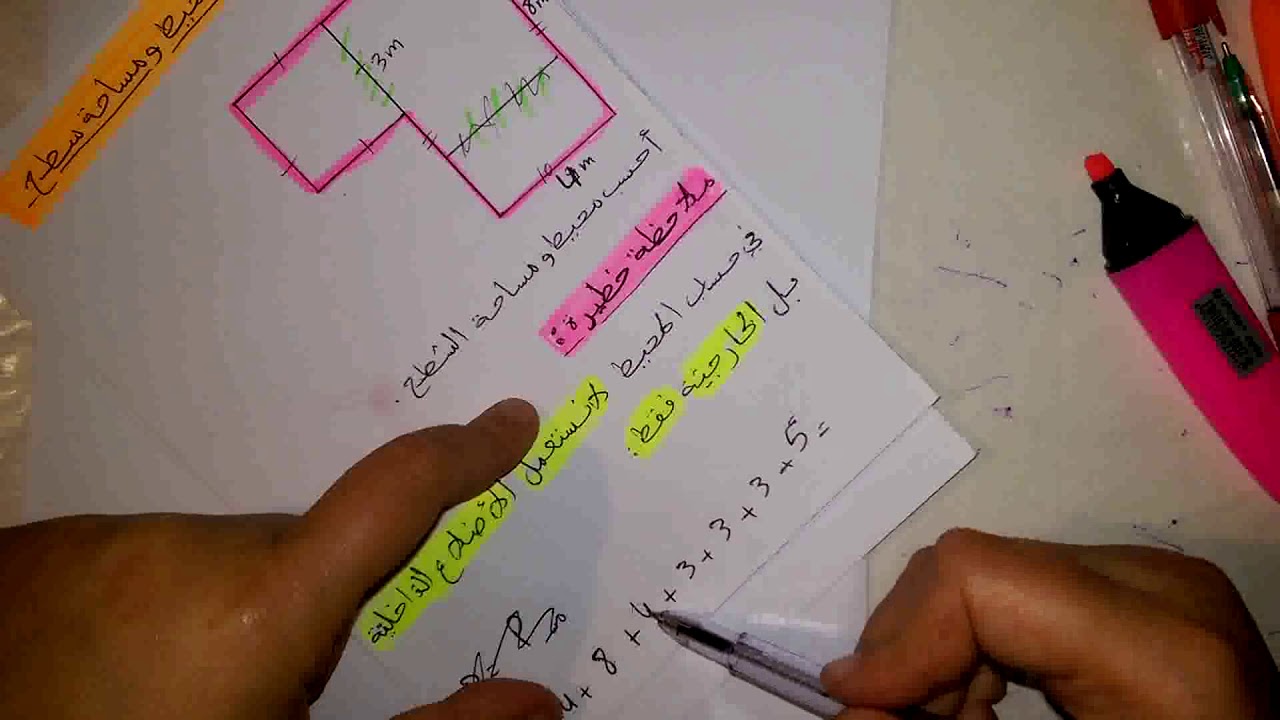 محيط ومساحة سطح
8m
3m
4m
أحسب محيط ومساحة السطح.
ملاحظة خطيرة:
في حساب المحيط لا نستعمل الأضلاع الداخلية
بل الخارجية فقط:
4 + 8 + 4 + 3 + 3 + 3 + 5 =